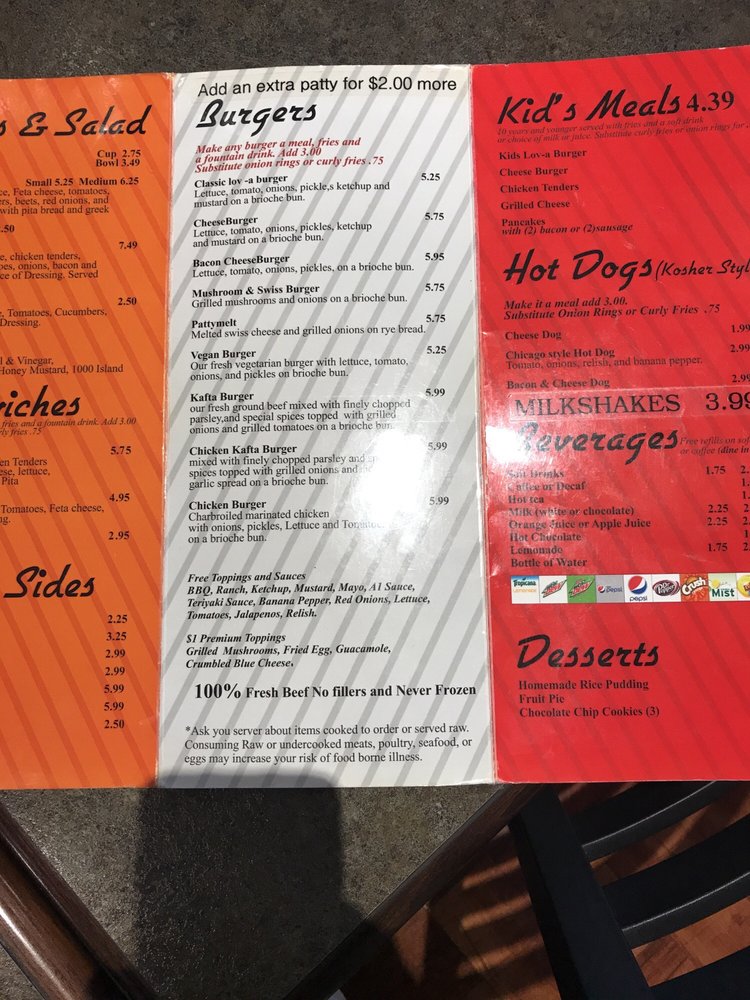 s & Salad
Cup 2.75
Bowl 3.49
Small 5.25 Medium 6.25
ce, Feta cheese, tomatoes,
ers, beets, red onions, and
with pita bread and greek
.50
7.49
e, chicken tenders,
pes, onions, bacon and
ce of Dressing. Served
2.50
e, Tomatoes, Cucumbers,
Dressing.
l & Vinegar,
Honey Mustard, 1000 Island
riches
fries and a fountain drink. Add 3.00
rly fries .75
5.75
en Tenders
ese, lettuce,
Pita
4.95
Tomatoes, Feta cheese,
ng.
2.95
Sides
2.25
3.25
2.99
2.99
5.99
5.99
2.50
Add an extra patty for $2.00 more
Burgers
Make any burger a meal, fries and
a fountain drink. Add 3.00
Substitute onion rings or curly fries .75
Classic lov -a burger 5.25
Lettuce, tomato, onions, pickle,s ketchup and
mustard on a brioche bun.
CheeseBurger 5.75
Lettuce, tomato, onions, pickles, ketchup
and mustard on a brioche bun.
Bacon CheeseBurger 5.95
Lettuce, tomato, onions, pickles, on a brioche bun.
Mushroom & Swiss Burger 5.75
Grilled mushrooms and onions on a brioche bun.
Pattymelt 5.75
Melted swiss cheese and grilled onions on rye bread.
Vegan Burger 5.25
Our fresh vegetarian burger with lettuce, tomato,
onions, and pickles on brioche bun.
Kafta Burger 5.99
our fresh ground beef mixed with finely chopped
parsley,and special spices topped with grilled
onions and grilled tomatoes on a brioche bun.
Chicken Kafta Burger 5.99
mixed with finely chopped parsley and
spices topped with grilled onions and
garlic spread on a brioche bun.
Chicken Burger 5.99
Charbroiled marinated chicken
with onions, pickles, Lettuce and
on a brioche bun.
Free Toppings and Sauces
BBQ, Ranch, Ketchup, Mustard, Mayo, A1 Sauce,
Teriyaki Sauce, Banana Pepper, Red Onions, Lettuce,
Tomatoes, Jalapenos, Relish.
$1 Premium Toppings
Grilled Mushrooms, Fried Egg, Guacamole,
Crumbled Blue Cheese.
100% Fresh Beef No fillers and Never Frozen
*Ask you server about items cooked to order or served raw.
Consuming Raw or undercooked meats, poultry, seafood, or
eggs may increase your risk of food borne illness.
Kid's Meals 4.39
10 years and younger served with fries and a soft drink
or choice of milk or juice. Substitute curly fries or onion rings for
Kids Lov-a Burger
Cheese Burger
Chicken Tenders
Grilled Cheese
Pancakes
with (2) bacon or (2)sausage
Hot Dogs (Kosher Styl
Make it a meal add 3.00.
Substitute Onion Rings or Curly Fries .75
Cheese Dog 1.99
Chicago style Hot Dog 2.99
Tomato, onions, relish, and banana pepper.
Bacon & Cheese Dog 2.99
MILKSHAKES 3.99
Beverages Free refills on sof
or coffee (dine in
Soft Drinks 1.75 2.
Coffee or Decaf 1.
Hot tea 1.
Milk (white or chocolate) 2.25 2
Orange Juice or Apple Juice 2.25 2.
Hot Chocolate 1
Lemonade 1.75 2.
Bottle of Water
Tropicana
LEMONADE
pepsi
pepsi
Dr Pepper
Crush
Mist
Desserts
Homemade Rice Pudding
Fruit Pie
Chocolate Chip Cookies (3)